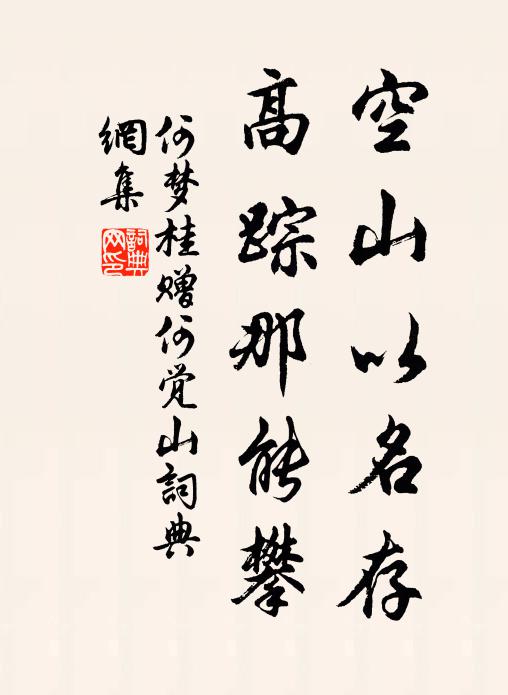 空山以名存
高踪那能攀
何梦桂赠何觉山詞典
網集
詞典
网印